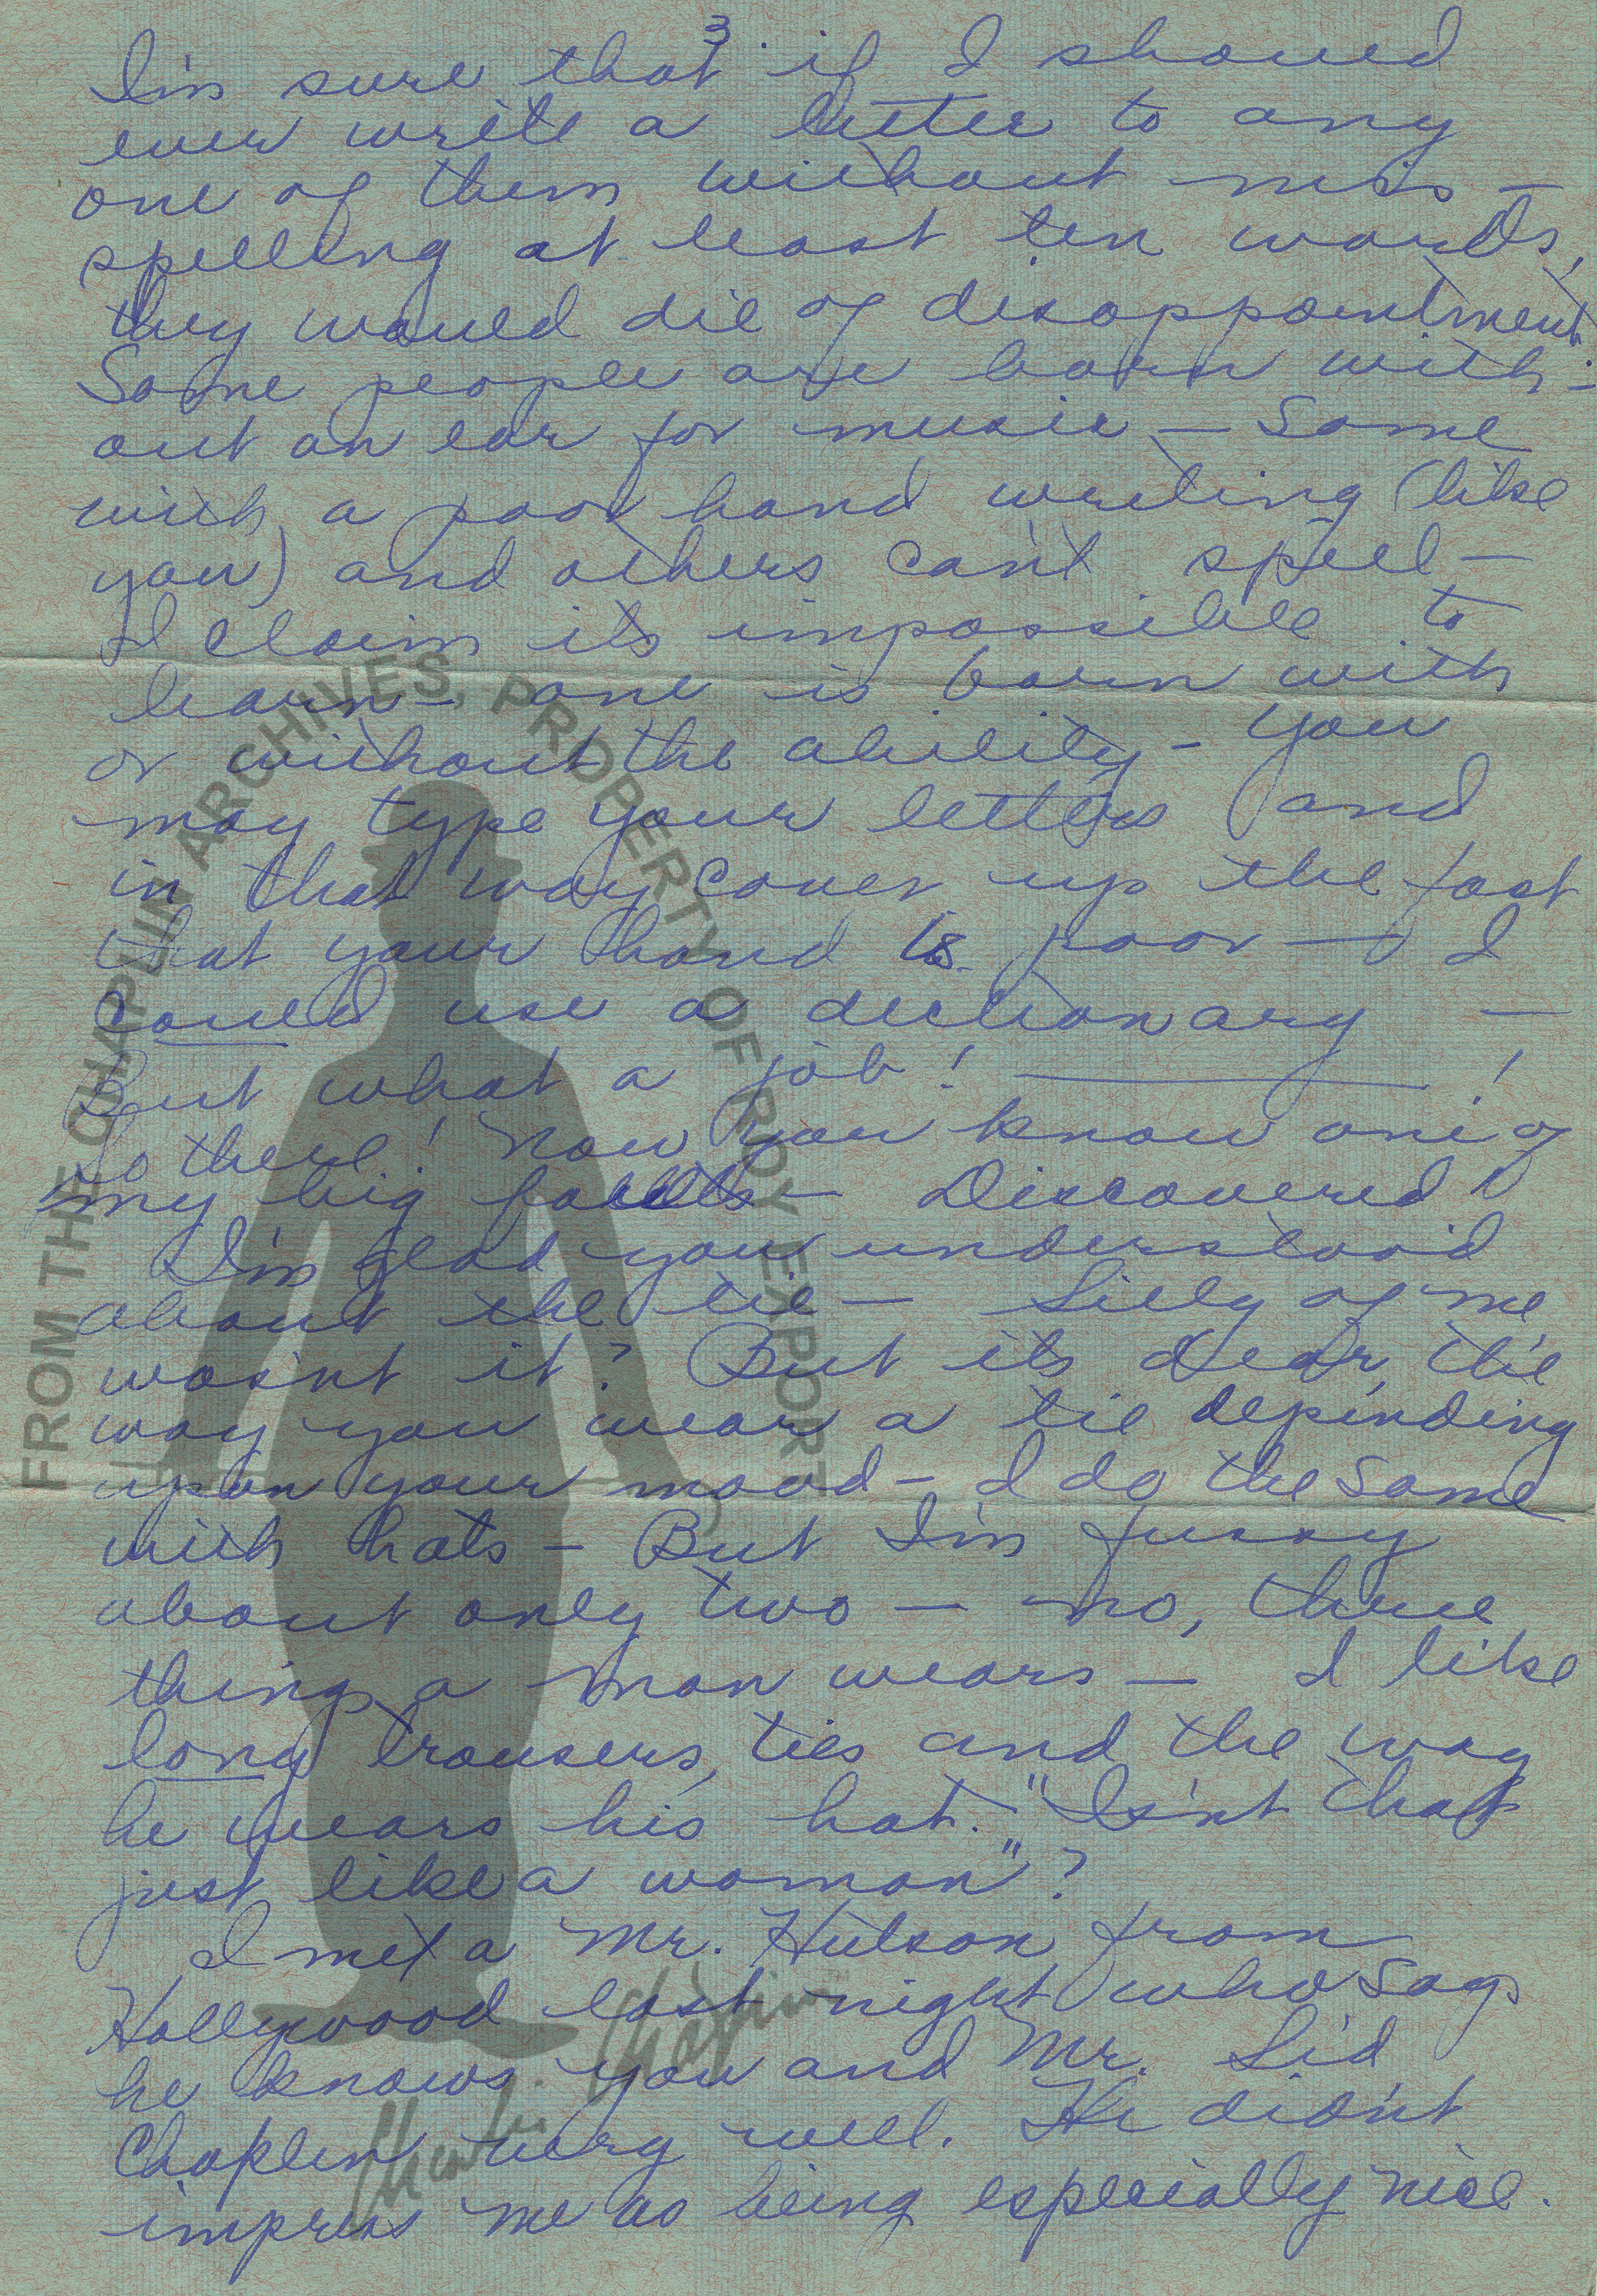 3.
I'm sure that if I should
ever write a letter to any
one of them without miss-
spelling at least ten words,
they would die of disappointment.
Some people are born with-
out an ear for music — Some
with a poor hand writing (like
you) and others can't spell —
I claim its impossible to
learn — one is born with
or without the ability — You
may type your letters and
in that way cover up the fact
that your hand is poor — I
could use a dictionary —
But what a job! — !
So there! Now you know one of
my big faults — Discovered!
I'm glad you understood
about the tie — Silly of me,
wasn't it? But its dear, the
way you wear a tie depinding
upon your mood — I do the same
with hats — But I'm fussy
about only two — no, three
things a man wears — I like
long trousers, ties and the way
he wears his hat. "Isn't that
just like a woman"?
I met a Mr. Hutson from
Hollywood last night who says
he knows you and Mr. Sid
Chaplin very well. He didn't
impress me as being especially nice.
FROM THE CHAPLIN ARCHIVES, PROPERTY OF ROY EXPORT
Charlie Chaplin